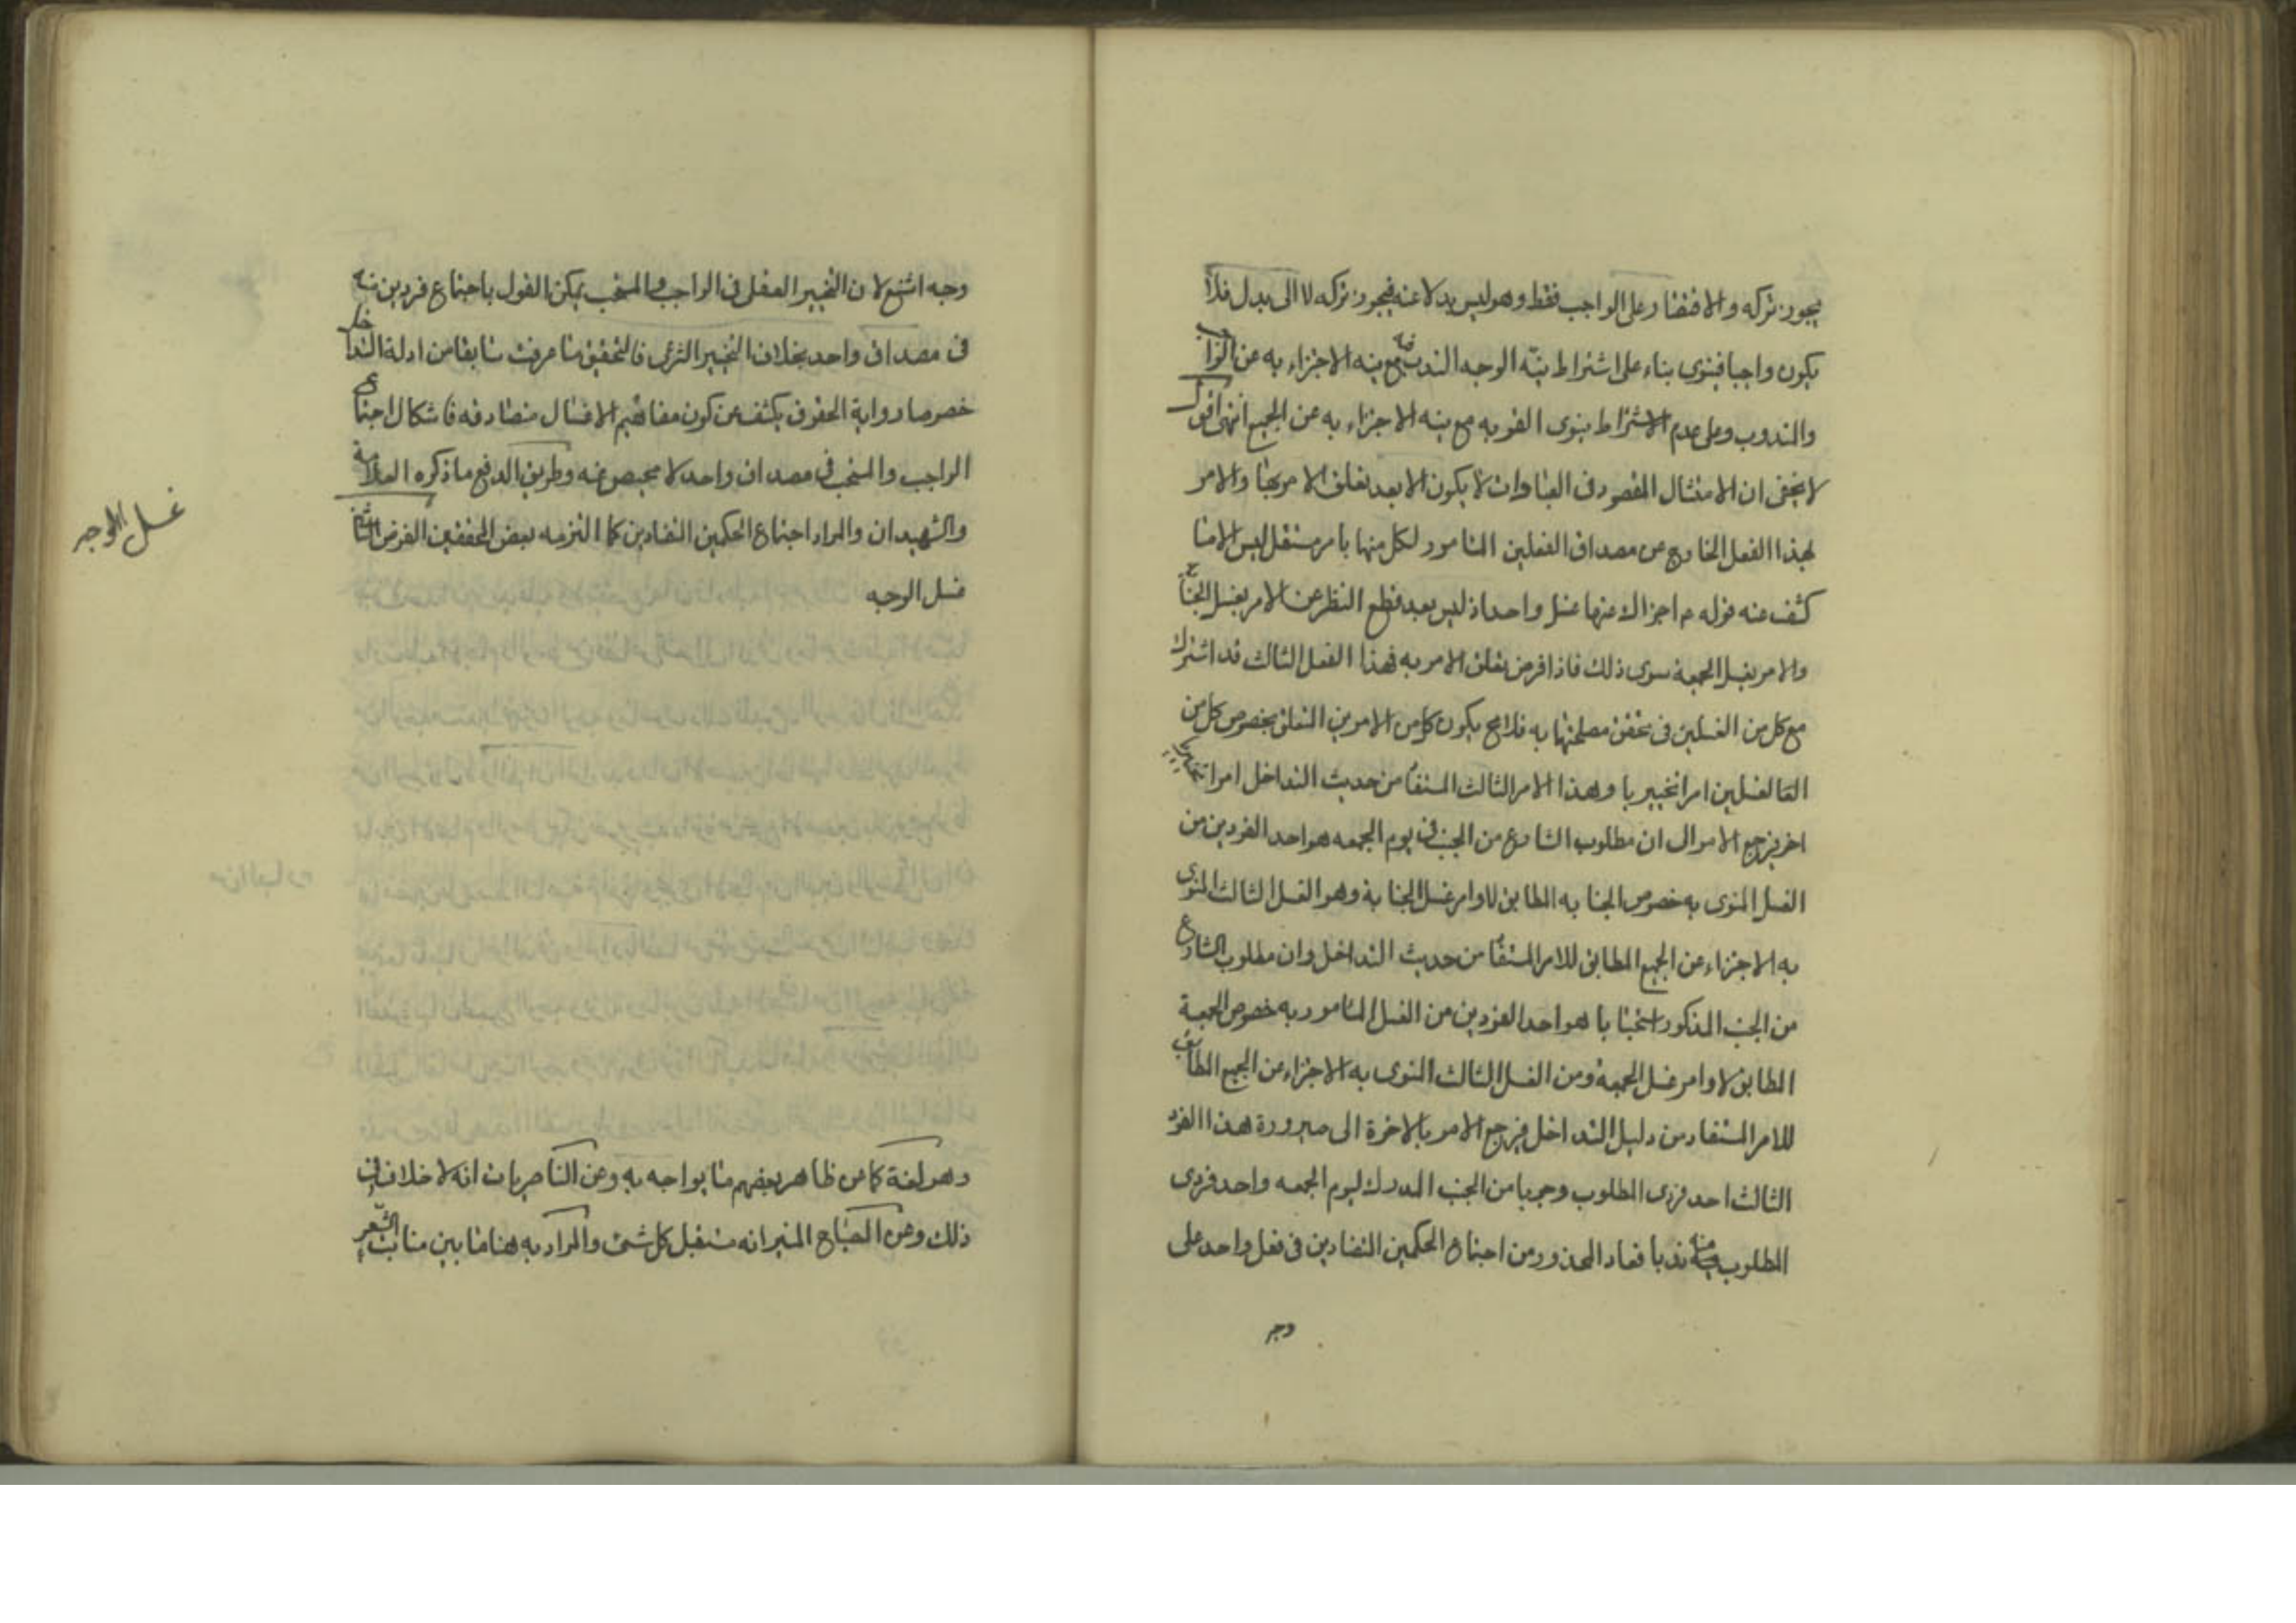 يجوز تركه والاقتصار على الواجب فقط وهو ليس بدلا عنه فيجوز تركه لا الى بدل فلا
يكون واجبا فينوى بناء على اشتراط نيّة الوجه الندب فيه مع نيه الاجزاء به عن الواجب
والمندوب وعلى عدم الاشتراط ينوى القربه مع نيه الاجزاء به عن الجميع انتهى اقول
لا يخفى ان الامتثال المقصود فى العبادات لا يكون الا بعد تعلق الامر بها والامر
بهذا الفعل الخارج عن مصداق الفعلين المامور لكل منهما بامر مستقل ليس الا ما
كشف عنه قوله ع اجزاك عنها غسل واحد اذ ليس بعد قطع النظر عن الامر بغسل الجنابة
والامر بغسل الجمعة سوى ذلك فاذا فرض تعلق الامر به فهذا الفعل الثالث قد اشترك
مع كل من الغسلين فى تحقق مصلحتهما به فلا مح يكون كل من الامرين المتعلق بخصوص كل من
الغسلين امرا تخييريا وهذا الامر الثالث المستفاد من حديث التداخل امرا تخييريا
اخر فيرجع الامر الى ان مطلوب الشارع من الجنب فى يوم الجمعه هو احد الفردين من
الغسل المنوى به خصوص الجنابه المطابق لاوامر غسل الجنابة وهو الغسل الثالث المنوى
به الاجزاء عن الجميع المطابق للامر المستفاد من حديث التداخل وان مطلوب الشارع
من الجنب المذكور استحبابا هو احد الفردين من الغسل المامور به خصوص الجمعة
المطابق لاوامر غسل الجمعة ومن الغسل الثالث المنوى به الاجزاء عن الجميع المطابق
للامر المستفاد من دليل التداخل فيرجع الامر بالاخرة الى صيرورة هذا الفرد
الثالث احد فردى المطلوب وجوبا من الجنب المدرك ليوم الجمعه واحد فردى
المطلوب منه ندبا فعاد المحذور من اجتماع الحكمين المتضادين فى فعل واحد على
وجه
وجه اشنع لان التخيير العقلى فى الواجب والمستحب يمكن القول باجتماع فردين منه
فى مصداق واحد بخلاف التخيير الشرعى فالتحقيق ما عرفت سابقا من ادلة التداخل
خصوصا رواية الحقوق يكشف عن كون مفاهيم الاغسال متصادقه فاشكال اجتماع
الواجب والمستحب فى مصداق واحد لا محيص عنه وطريق الدفع ما ذكره العلامة
والشهيدان والمراد اجتماع الحكمين المتضادين كما التزمه بعض المحققين الفرض الثانى
غسل الوجه
غسل الوجه
وهو لغة كما عن ظاهر بعضهم ما يواجه به وعن الناصريات انه لا خلاف فى
ذلك وعن المصباح المنير انه مستقبل كل شىء والمراد به هنا ما بين منابت الشعر